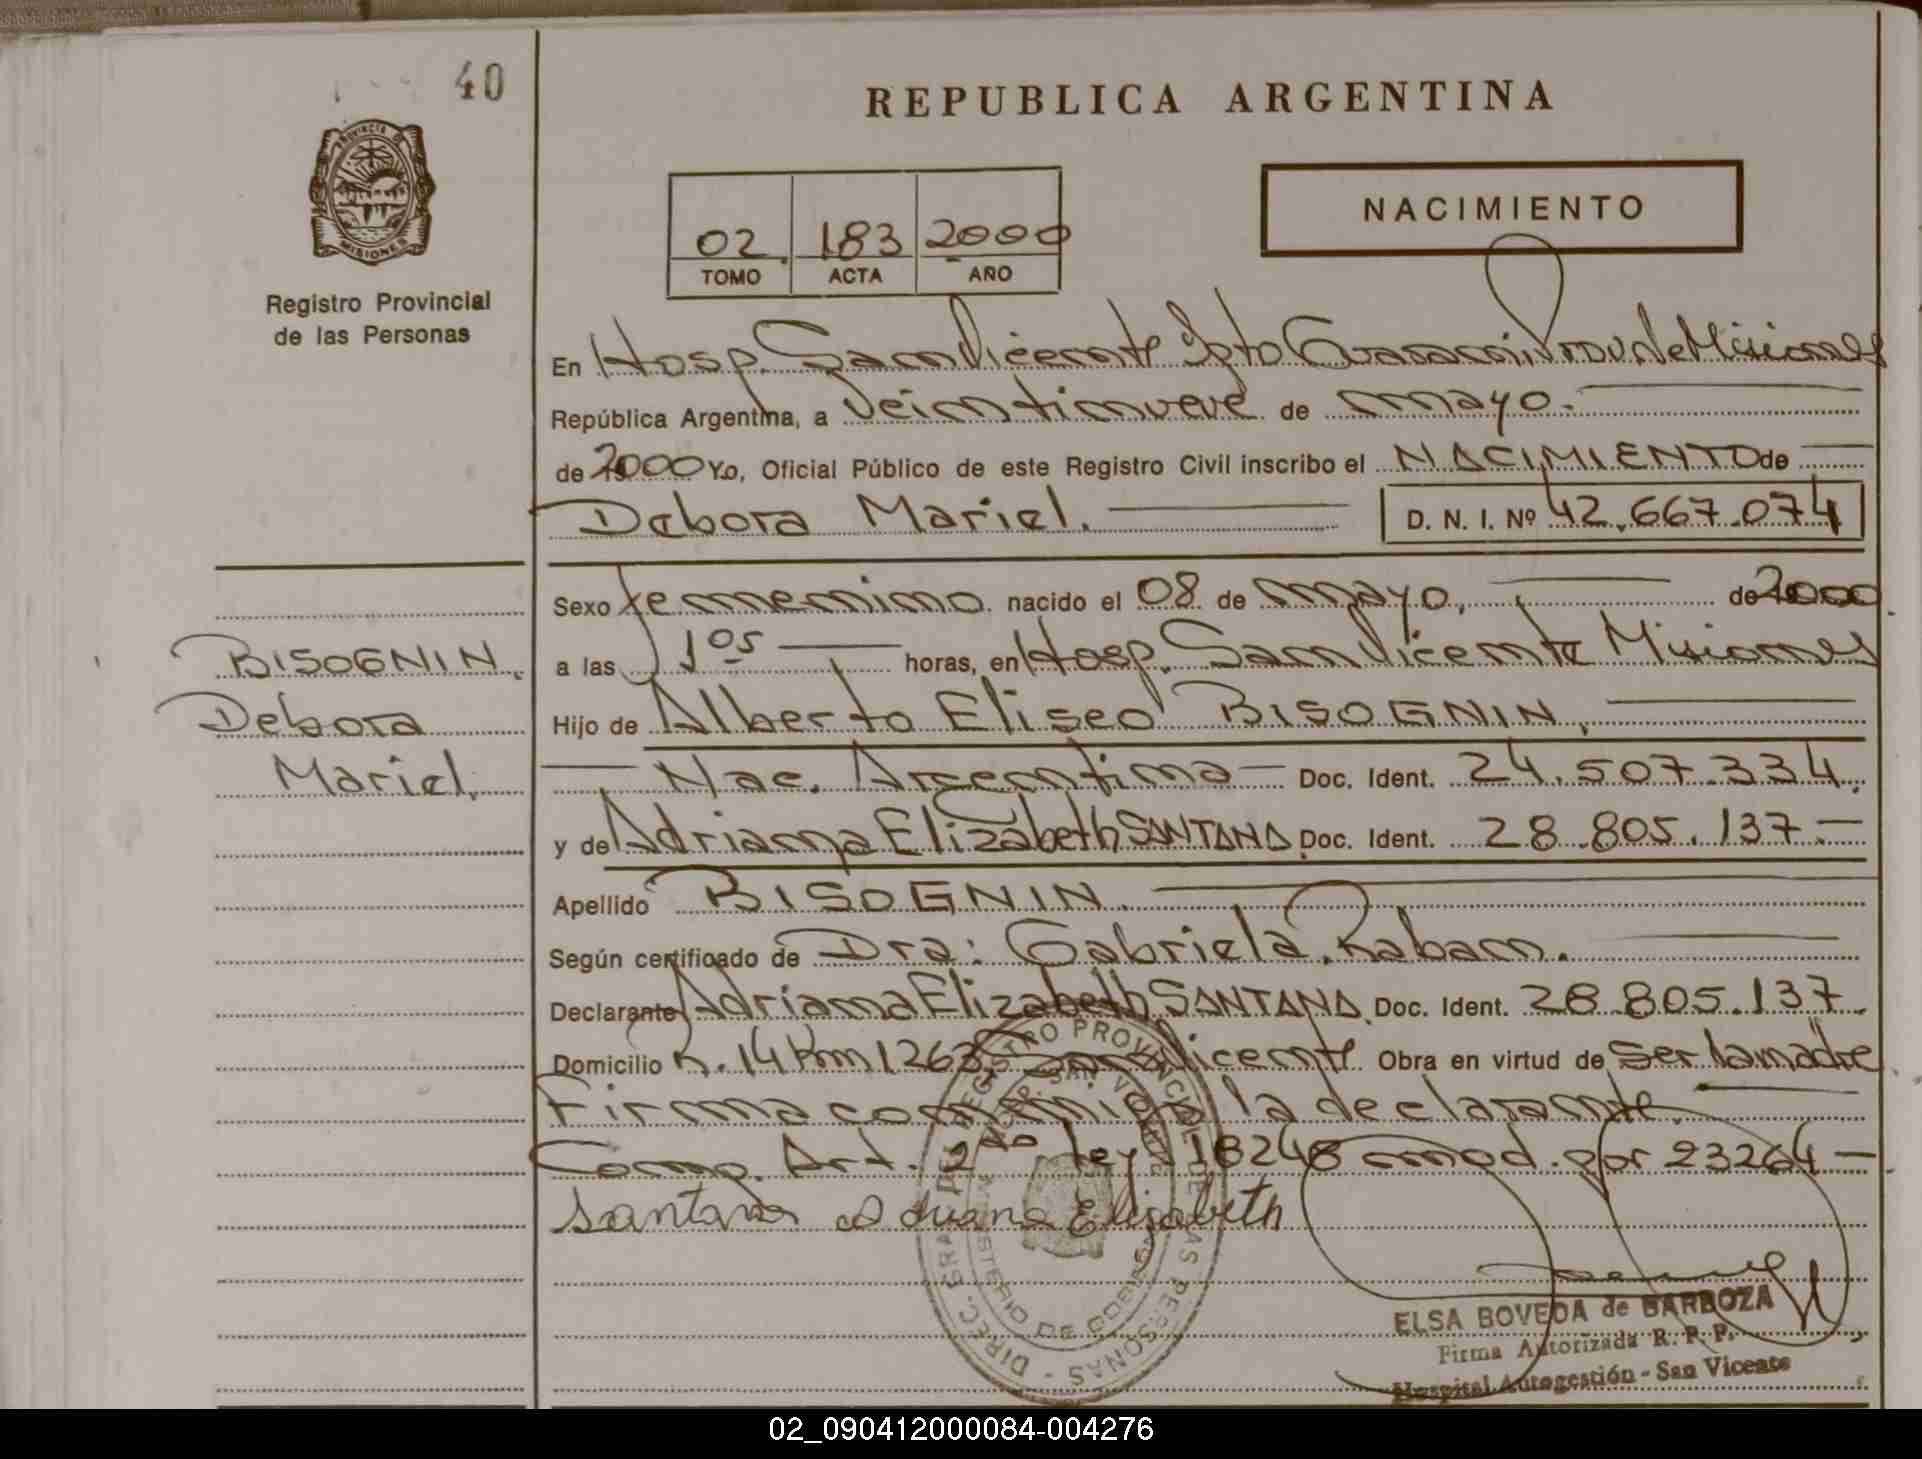 40
REPUBLICA ARGENTINA
PROVINCIA DE
MISIONES
Registro Provincial
de las Personas
02 183 2000
TOMO ACTA AÑO
NACIMIENTO
En Hosp. San Vicente Dpto Guarani, Prov de Misiones
República Argentina, a Veintinueve de mayo.
de 2000 Yo, Oficial Público de este Registro Civil inscribo el NACIMIENTO de
Debora Mariel. D. N. I. Nº 42.667.074
Sexo femenino nacido el 08 de mayo, de 2000
a las 1os horas, en Hosp. San Vicente Misiones
Hijo de Alberto Eliseo BISOGNIN,
Nac. Argentina Doc. Ident. 24.507.334
y de Adriana Elizabeth SANTANA Doc. Ident. 28.805.137
Apellido BISOGNIN.
Según certificado de Dra: Gabriela Raban.
Declarante Adriana Elizabeth SANTANA Doc. Ident. 28.805.137
Domicilio R. 14 Km 1263, San Vicente Obra en virtud de ser la madre
Firma conmigo la declarante.
Comp. Art. 2do ley 18248 mod. por 23264
Santana Adriana Elisabeth
BISOGNIN,
Debora
Mariel.
DIREC. GRAL. DEL REGISTRO PROVINCIAL DE LAS PERSONAS
HOSP. SAN VICENTE
MINISTERIO DE GOBIERNO
ELSA BOVEDA de BARBOZA
Firma Autorizada R. P. P.
Hospital Autogestión - San Vicente
02_090412000084-004276